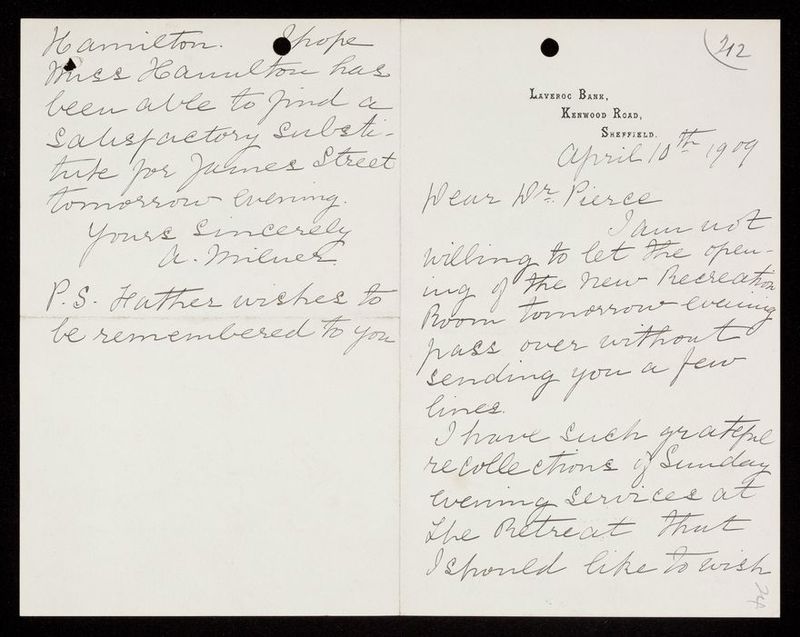 Hamilton. I hope
Miss Hamilton has
been able to find a
satisfactory substi-
tute for James Street
tomorrow evening.
Yours sincerely
A. Milner.
P.S. Father wishes to
be remembered to you
212
Laveroc Bank,
Kenwood Road,
Sheffield.
April 10th 1909
Dear Dr. Pierce
I am not
willing to let the open-
ing of the new Recreation
Room tomorrow evening
pass over without
sending you a few
lines.
I have such grateful
recollections of Sunday
evening services at
the Retreat that
I should like to wish